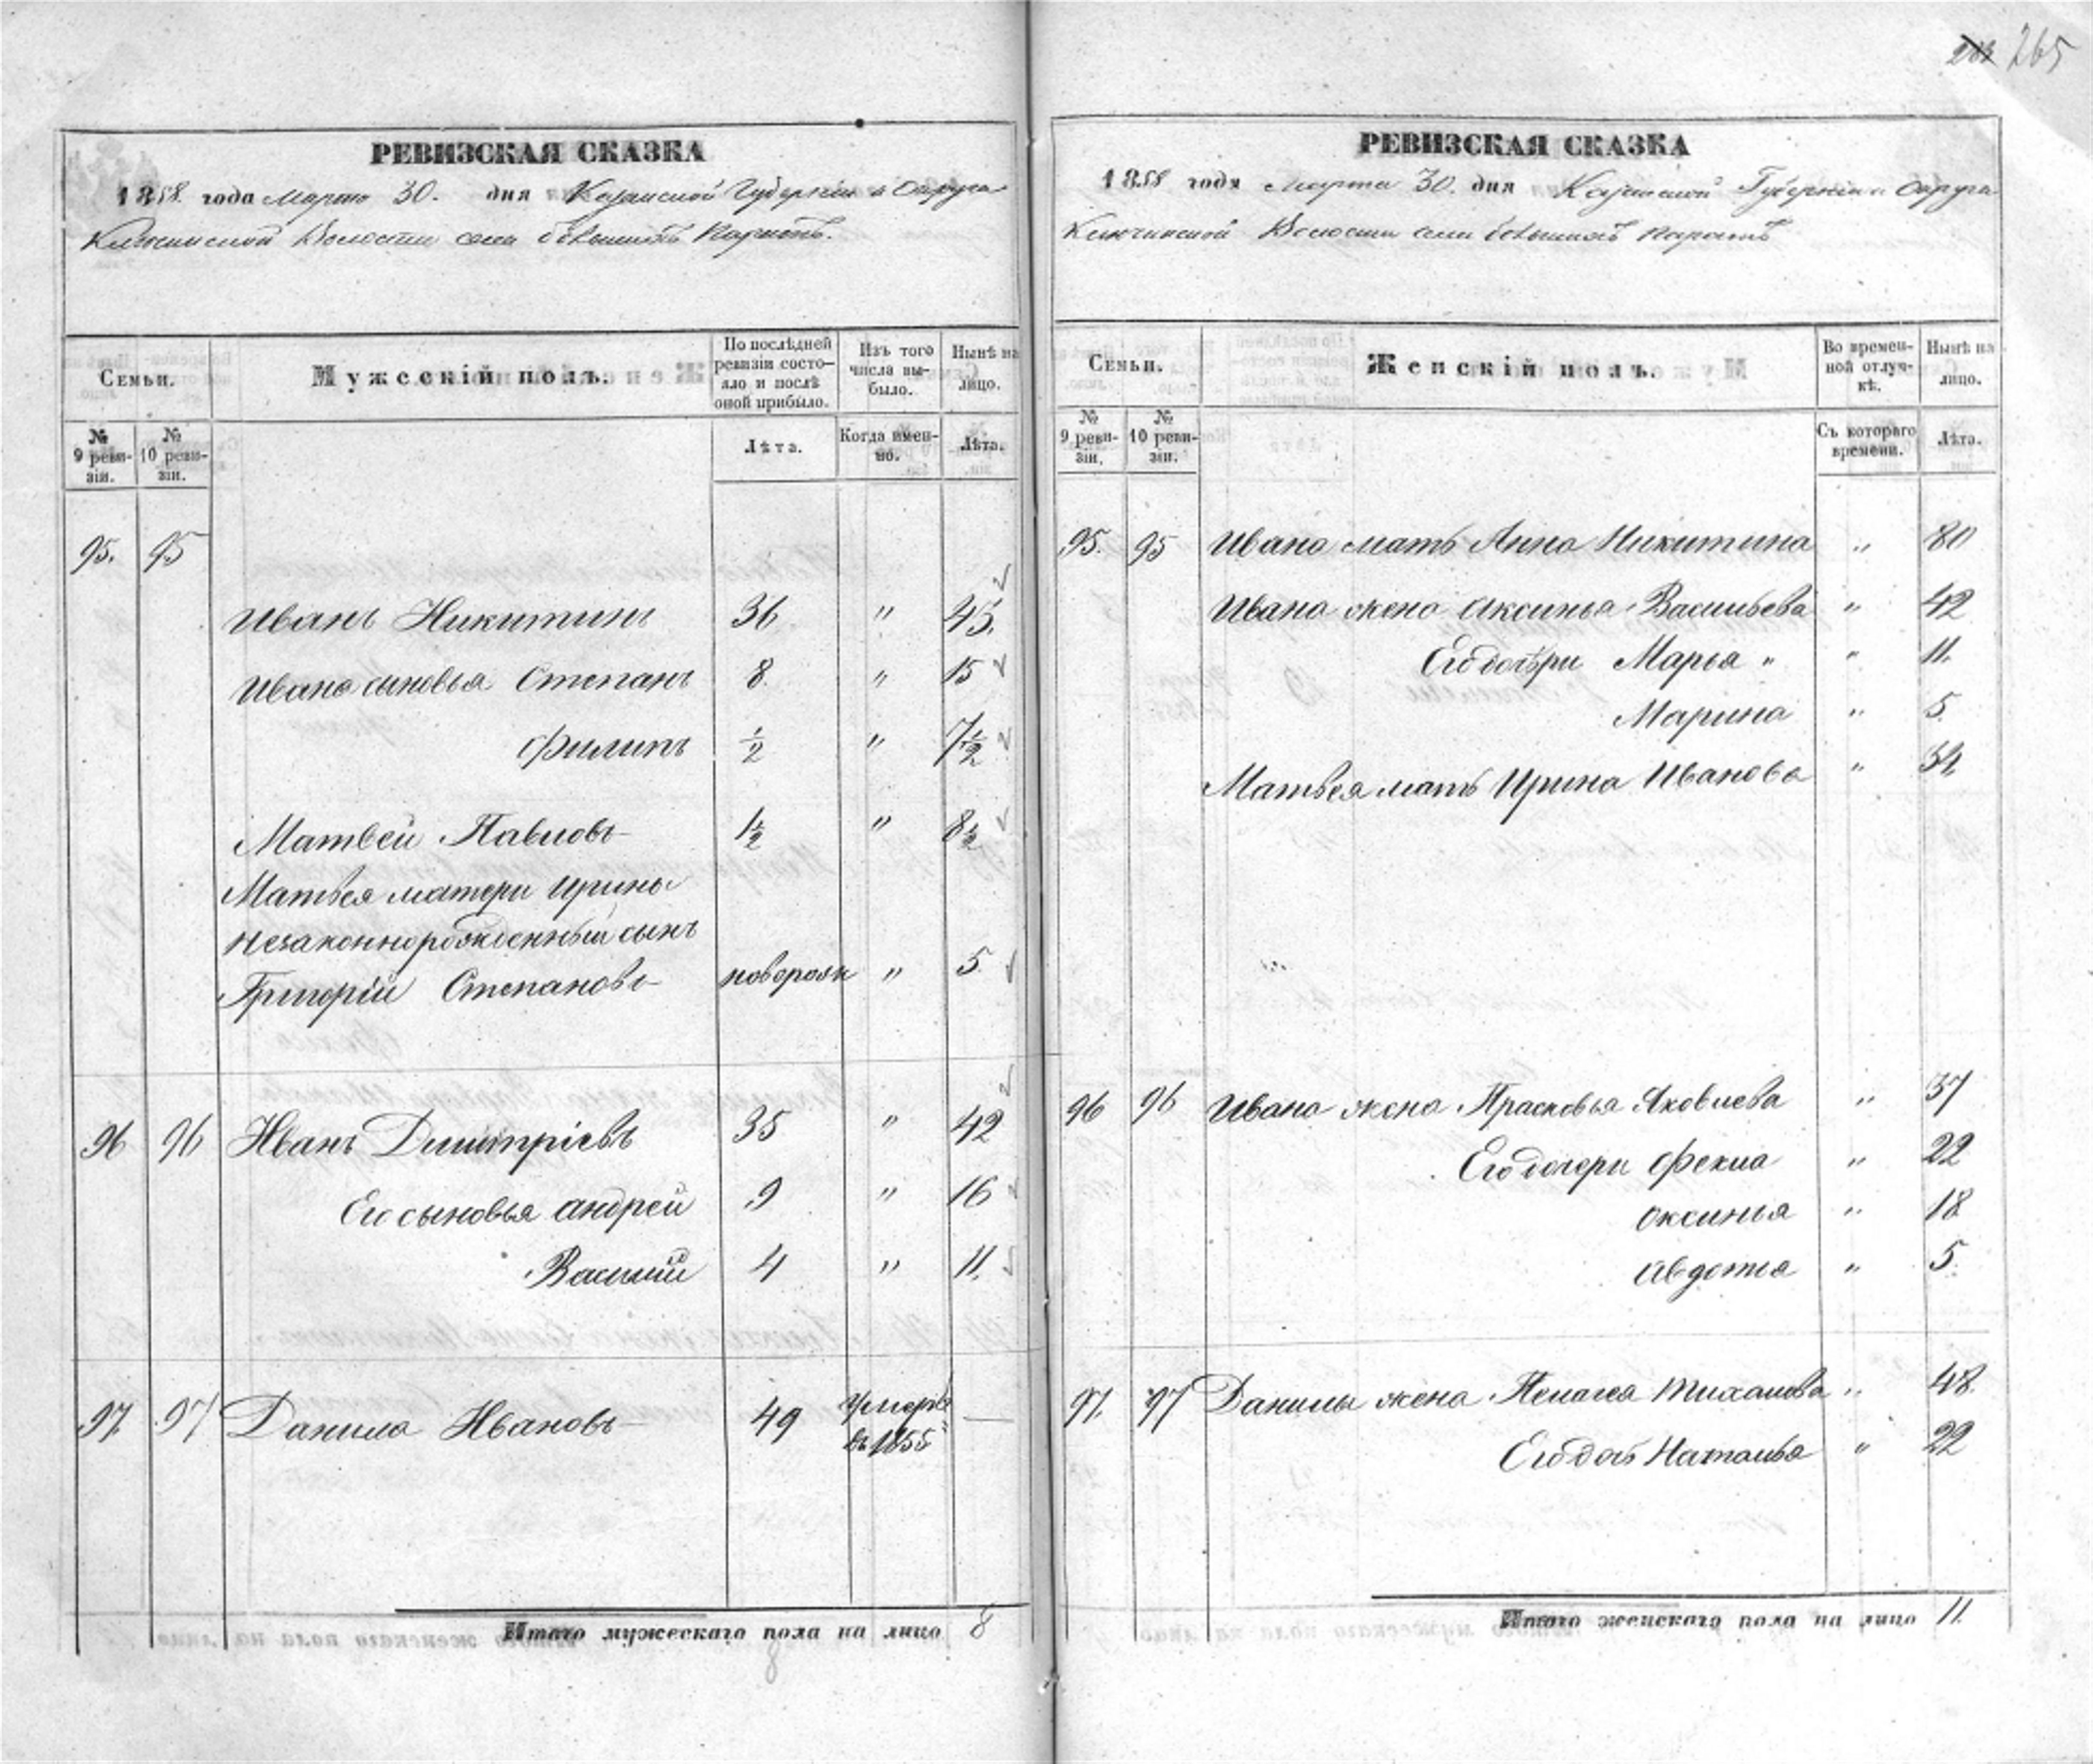 265
РЕВИЗСКАЯ СКАЗКА
1858. года Марта 30. дня Казанской Губерніи и Округа
Ключинской Волости села большихъ Каратъ.
Семьи.
Мужескій полъ.
По послѣдней ревизіи состояло и послѣ оной прибыло.
Изъ того числа выбыло.
Нынѣ на лицо.
№ 9 ревизіи.
№ 10 ревизіи.
Лѣта.
Когда именно.
Лѣта.
95. 95
Иванъ Никитинъ 36 " 43.
Ивана сыновья Степанъ 8. " 15
Филипъ ½ " 7½
Матвей Павловъ 1½ " 8½
Матвея матери Ирины
незаконнорожденный сынъ
Григорій Степановъ новорожд " 5.
96 96 Иванъ Дмитріевъ 35 " 42
Его сыновья Андрей 9 " 16
Василий 4 " 11.
97. 97 Данила Ивановъ 49 Умеръ въ 1855 —
Итого мужескаго пола на лицо 8
8
РЕВИЗСКАЯ СКАЗКА
1858 года Марта 30. дня Казанской Губерніи и округа
Ключинской Волости села большихъ Каратъ
Семьи.
Женскій полъ.
Во временной отлучкѣ.
Нынѣ на лицо.
№ 9 ревизіи.
№ 10 ревизіи.
Съ котораго времени.
Лѣта.
95. 95 Ивана мать Анна Никитина " 80
Ивана жена Аксинья Васильева " 42
Его дочери Марья " " 11.
Марина " 5
Матвея мать Ирина Иванова " 34
96 96 Ивана жена Прасковья Яковлева " 37
Его дочери Фекла " 22
Оксинья " 18
Авдотья " 5.
97. 97 Данилы жена Пелагея Михайлова " 48.
Его дочь Наталья " 22
Итого женскаго пола на лицо 11.